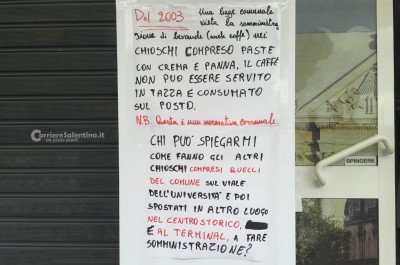 Dal 2003 Una legge comunale
vieta la somministra
zione di bevande (anche caffè) nei
CHIOSCHI COMPRESO PASTE
CON CREMA E PANNA, IL CAFFÈ
NON PUÒ ESSERE SERVITO
IN TAZZA E CONSUMATO
SUL POSTO.
N.B. Questa è una normativa comunale.
CHI PUO' SPIEGARMI
COME FANNO GLI ALTRI
CHIOSCHI COMPRESI QUELLI
DEL COMUNE SUL VIALE
DELL'UNIVERSITÀ E POI
SPOSTATI IN ALTRO LUOGO
NEL CENTRO STORICO,
E AL TERMINAL, A FARE
SOMMINISTRAZIONE?
CorriereSalentino.it
SPINGERE